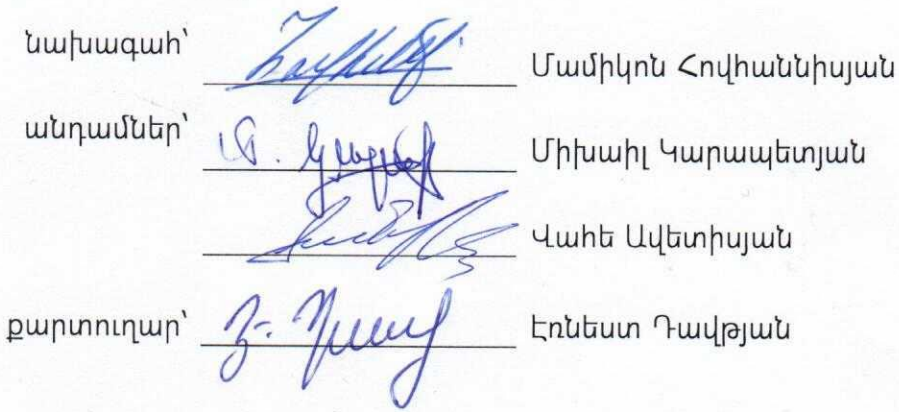 նախագահ՝ Մամիկոն Հովհաննիսյան
անդամներ՝ Միխաիլ Կարապետյան
Վահե Ավետիսյան
քարտուղար՝ Էռնեստ Դավթյան